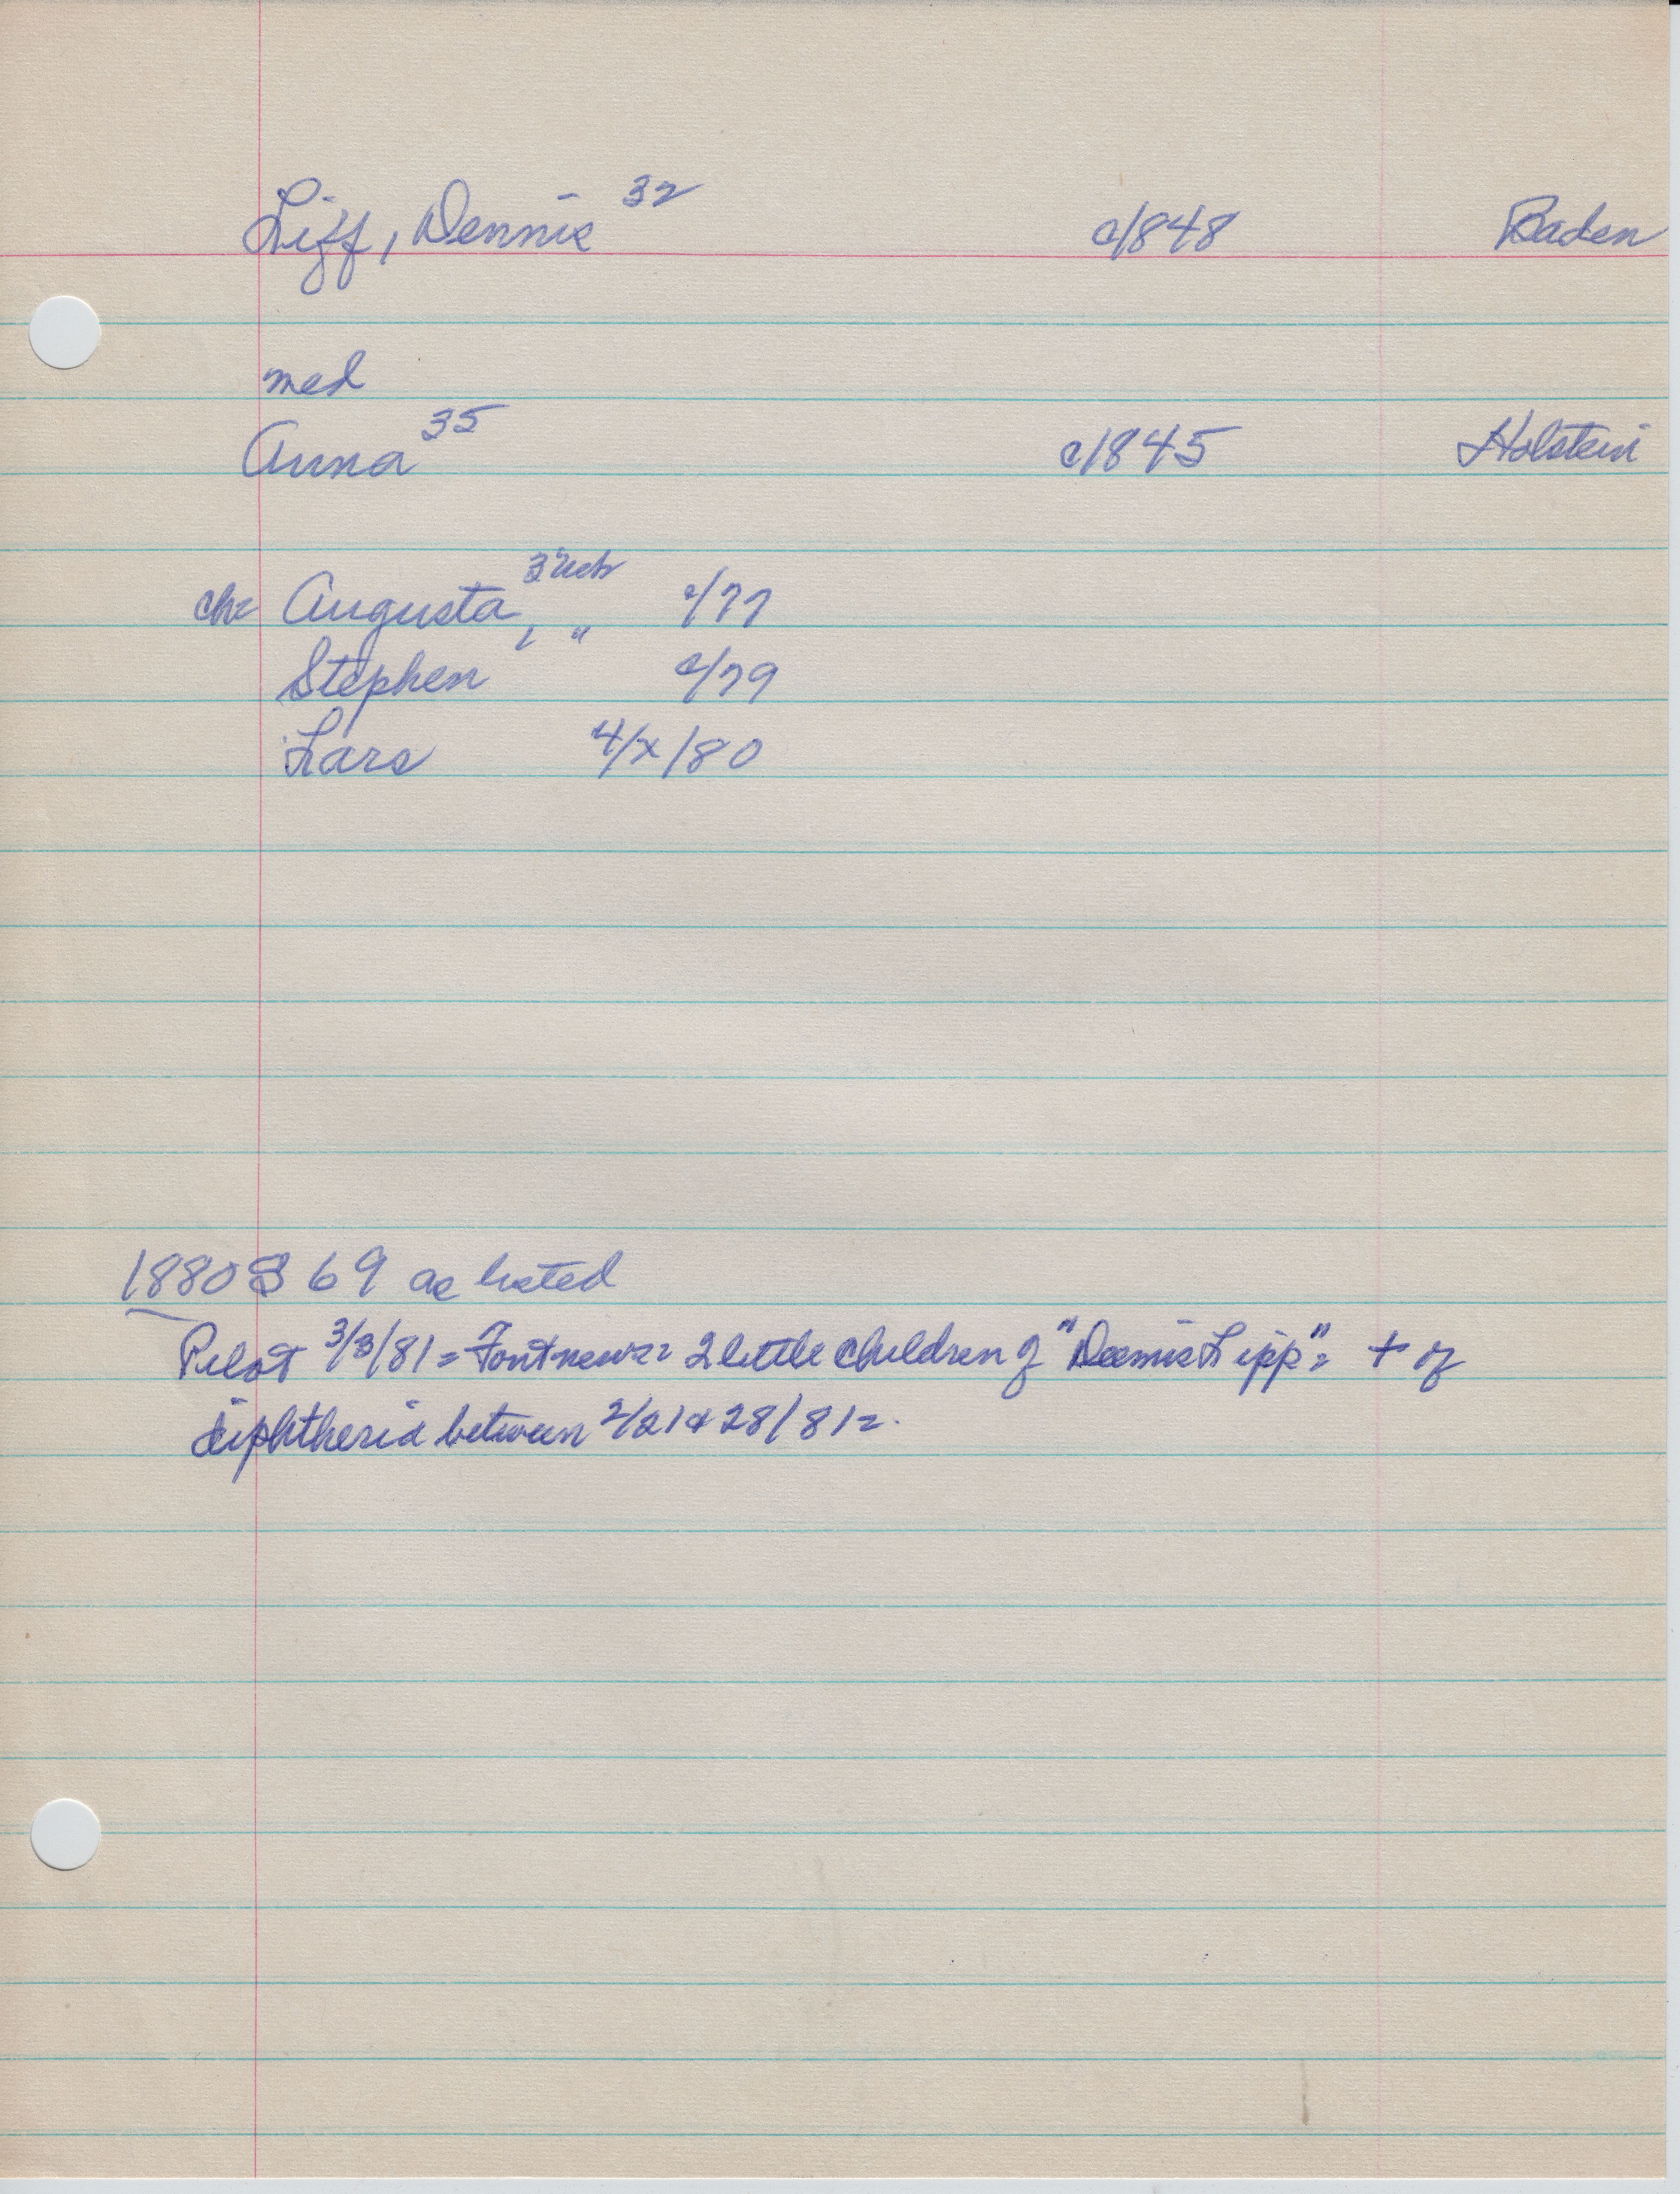 Liff, Dennis 32 c/848 Baden
med
Anna 35 c/845 Holstein
ch= Augusta, 3 c/77
Stephen, " c/79
Lars 4/x/80
1880 S 69 as listed
Pilot 3/3/81= Font news= 2 little children of "Dennis Lipp"= + of
diphtheria between 2/21 & 28/81=.